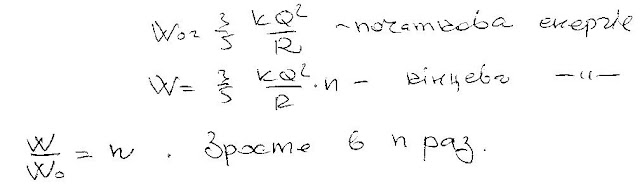 W₀ = 3/5 kQ²/R – початкова енергія
W = 3/5 kQ²/R · n – кінцева –"–
W/W₀ = n . Зросте в n раз.